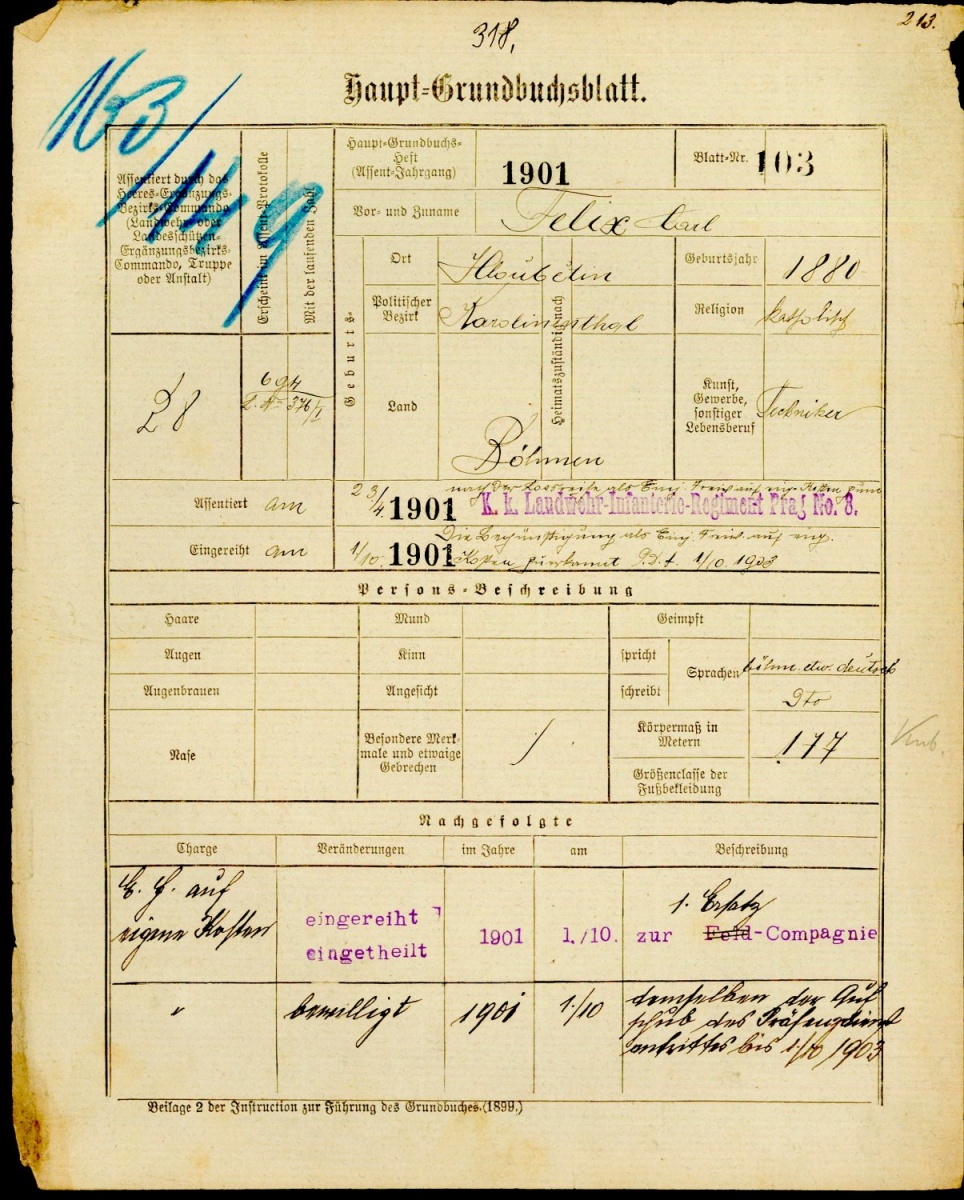 213.
318.
Haupt-Grundbuchsblatt.
163/14 9
Assentiert durch das
Heeres-Ergänzungs-
Bezirks-Commando
(Landwehr- oder
Landesschützen-
Ergänzungsbezirks-
Commando, Truppe
oder Anstalt)
Erscheint im Assent-Protokolle
Mit der laufenden Zahl
Haupt-Grundbuchs-
Heft
(Assent-Jahrgang)
1901
Blatt-Nr. 103
Vor- und Zuname
Felix Carl
Geburts-
Ort
Hloubětin
Geburtsjahr
1880
Politischer
Bezirk
Karolinenthal
Religion
katholisch
Heimatszuständig nach
Land
Böhmen
Kunst,
Gewerbe,
sonstiger
Lebensberuf
Techniker
28
694
376/I
Assentiert am 23/4. 1901
nach der Losreihe als Einj. Freiw. auf eig. Kosten zum
K. k. Landwehr-Infanterie-Regiment Prag No. 8.
Eingereiht am 1/10. 1901
Die Begünstigung als Einj. Freiw. auf eig.
Kosten zuerkannt P.D. f. 1/10. 1903
Persons-Beschreibung
Haare
Mund
Geimpft
Augen
Kinn
spricht
Sprachen
böhm. dw. deutsch
Augenbrauen
Angesicht
schreibt
Dto
Nase
Besondere Merk-
male und etwaige
Gebrechen
/
Körpermaß in
Metern
177
Größenclasse der
Fußbekleidung
Nachgefolgte
Charge
Veränderungen
im Jahre
am
Beschreibung
E. F. auf
eigene Kosten
eingereiht
eingetheilt
1901
1./10.
1. Ersatz
zur Feld-Compagnie
"
bewilligt
1901
1./10
demselben der Auf
schub des Präsenzdienst
antrittes bis 1./10 1903
Beilage 2 der Instruction zur Führung des Grundbuches.(1899.)